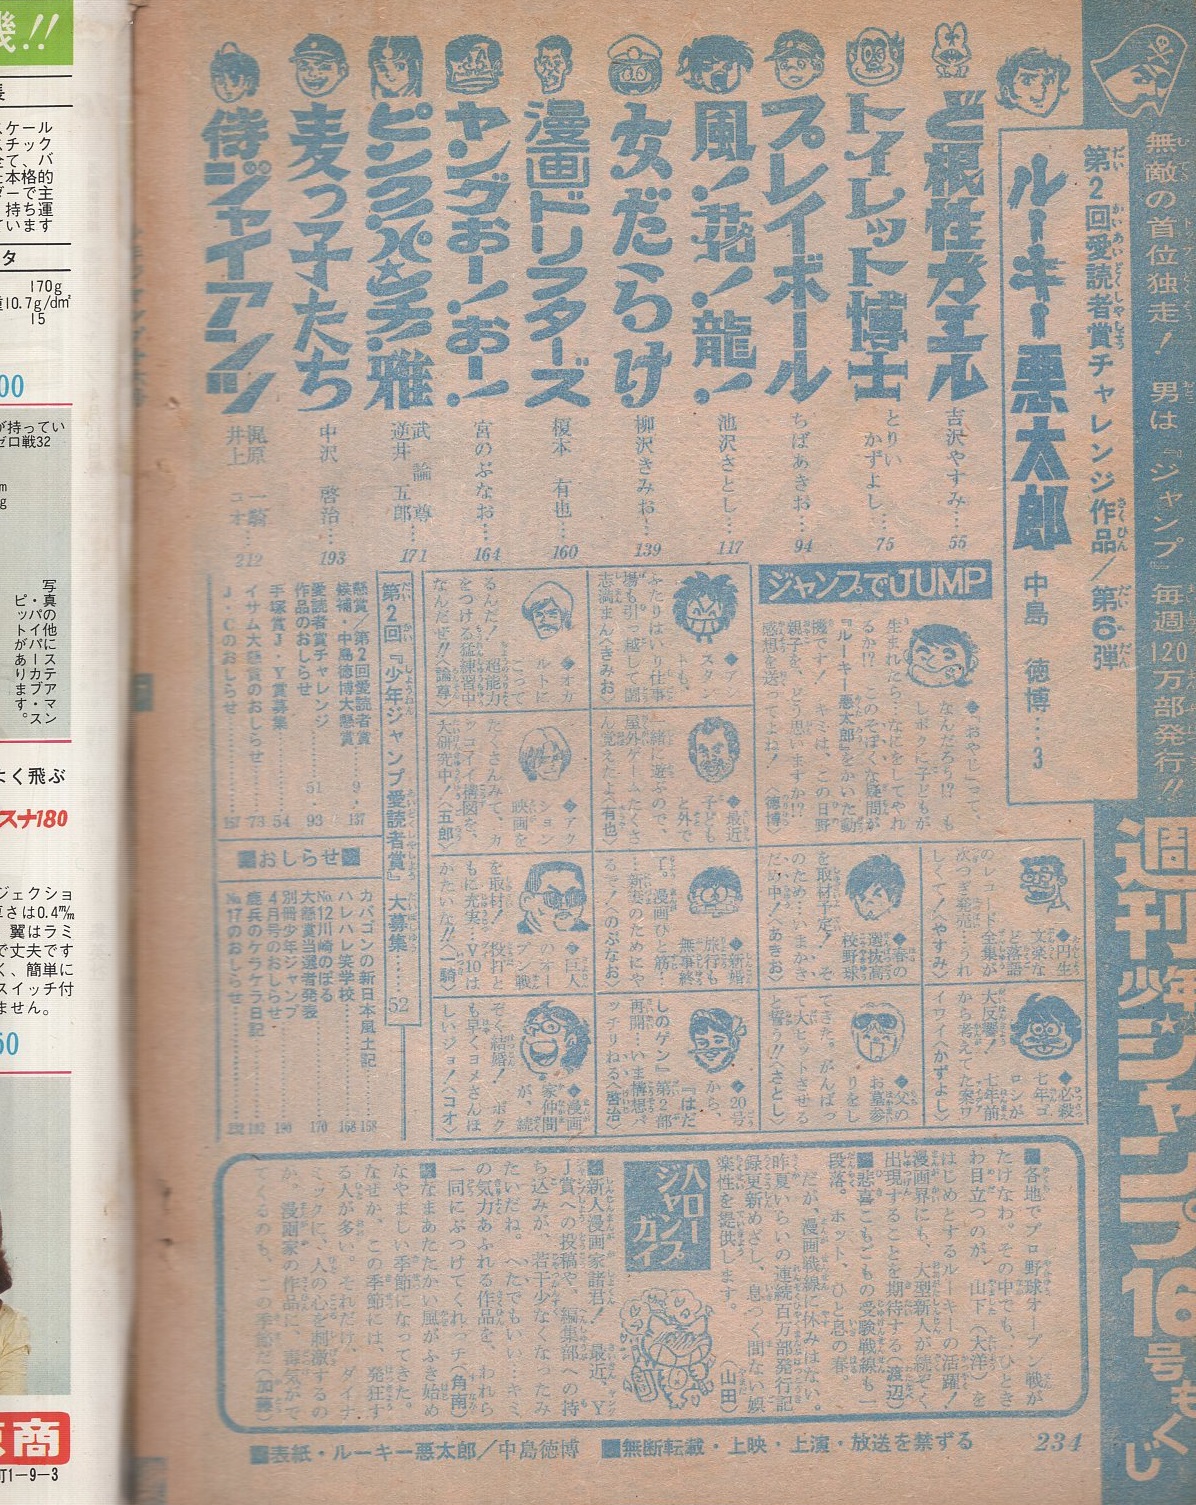 無敵の首位独走！ 男は『ジャンプ』毎週120万部発行!!
週刊少年ジャンプ16号もくじ
第2回愛読者賞チャレンジ作品／第6弾
ルーキー悪太郎 中島 徳博…3
ど根性ガエル 吉沢やすみ…55
トイレット博士 とりい かずよし…75
プレイボール ちばあきお…94
風！花！龍！ 池沢さとし…117
女だらけ 柳沢きみお…139
漫画ドリフターズ 榎本 有也…160
ヤングおー！おー！ 宮のぶなお…164
ピンク・パンチ！雅 武 論尊 逆井 五郎…171
麦っ子たち 中沢 啓治…193
侍ジャイアンツ 梶原 一騎 井上 コオ…212
ジャンプでJUMP
◆"おやじ"って、
なんだろう!? も
しボクに子どもが
生まれたら…なにをしてやれ
るか!? このそぼくな疑問が
『ルーキー悪太郎』をかいた動
機です！ キミは、この日野
親子を、どう思いますか!?
感想を送ってよね！〈徳博〉
◆円生
文楽な
ど落語
全集が
のレコード
次つぎ発売…うれ
しくて！〈やすみ〉
◆必殺
七年ゴ
ロンが
大反響！ 七年前
から考えてた案ワ
イワイ〈かずよし〉
◆春の
選抜高
校野球
を取材予定！ そ
のため…いまかき
だめ中！〈あきお〉
◆父の
お墓参
りをし
てきた。がんばっ
て大ヒットさせる
と誓う!!〈さとし〉
◆スタン
トも、
ふたりはいり仕事
場も引っ越して闘
志満まん〈きみお〉
◆最近
子ども
と外で
一緒に遊ぶので、
屋外ゲームたくさ
ん覚えたよ〈有也〉
◆新婚
旅行も
無事終
了。漫画ひと筋…
…新妻のためにや
るぞ！〈のぶなお〉
◆20号
から、
『はだ
しのゲン』第2部
再開…いま構想バ
ッチリねる〈啓治〉
◆オカ
ルトに
こって
るんだ！ 超能力
をつける猛練習中
なんだぜ!!〈論尊〉
◆アク
ション
映画を
たくさんみて、カ
ッコイイ構図を、
大研究中！〈五郎〉
◆巨人
のオー
プン戦
を取材！ 投打と
もに充実…V10は
かたいな!!〈一騎〉
◆漫画
家仲間
が、続
ぞく結婚！ ボク
も早くヨメさんほ
しいジョ！〈コオ〉
第2回『少年ジャンプ愛読者賞』大募集……52
懸賞／第2回愛読者賞
候補・中島徳博大懸賞…9・137
愛読者賞チャレンジ
作品のおしらせ…51・93
手塚賞J・Y賞募集…54
イサム大懸賞のおしらせ…73
J・Cのおしらせ…157
■おしらせ■
カバゴンの新日本風土記…158
ハレハレ笑学校…168
No.12川崎のぼる
大懸賞当選者発表…170
別冊少年ジャンプ
4月号のおしらせ…190
鹿兵のケラケラ日記…192
No.17のおしらせ…232
ハロージャンプガイ
■各地でプロ野球オープン戦が
たけなわ。その中でも、ひとき
わ目立つのが、山下（大洋）を
はじめとするルーキーの活躍！
漫画界にも、大型新人が続ぞく
出現することを期待する（渡辺）
■悲喜こもごもの受験戦線も一
段落。ホット、ひと息の春。
だが、漫画戦線に休みはない。
昨夏いらいの連続百万部発行記
録更新めざし、息つく間ない娯
楽性を提供します。 （山田）
■新人漫画家諸君！ 最近、Y
J賞への投稿や、編集部への持
ち込みが、若干少なくなったみ
たいだね。 へたでもいい…キミ
の気力あふれる作品を、われら
一同にぶつけてくれっチ（角南）
■なまあたたかい風がふき始め
なやましい季節になってきた。
なぜか、この季節には、発狂す
る人が多い。それだけ、ダイナ
ミックに、人の心を刺激するの
か。漫画家の作品に、毒気がで
てくるのも、この季節だ（加藤）
■表紙・ルーキー悪太郎／中島徳博 ■無断転載・上映・上演・放送を禁ずる
234
機!!
長
スケール
スチック
全て、バ
た本格的
ダーで主
、持ち運
ています
タ
170g
10.7g/d㎡
15
00
が持ってい
ゼロ戦32
写真の他にステアマン
・パイパーカブ・ス
ピットがあります。
よく飛ぶ
スナ180
ジェクショ
厚さは0.4㎜
、翼はラミ
で丈夫です
く、簡単に
スイッチ付
ません。
50
商
町1−9−3